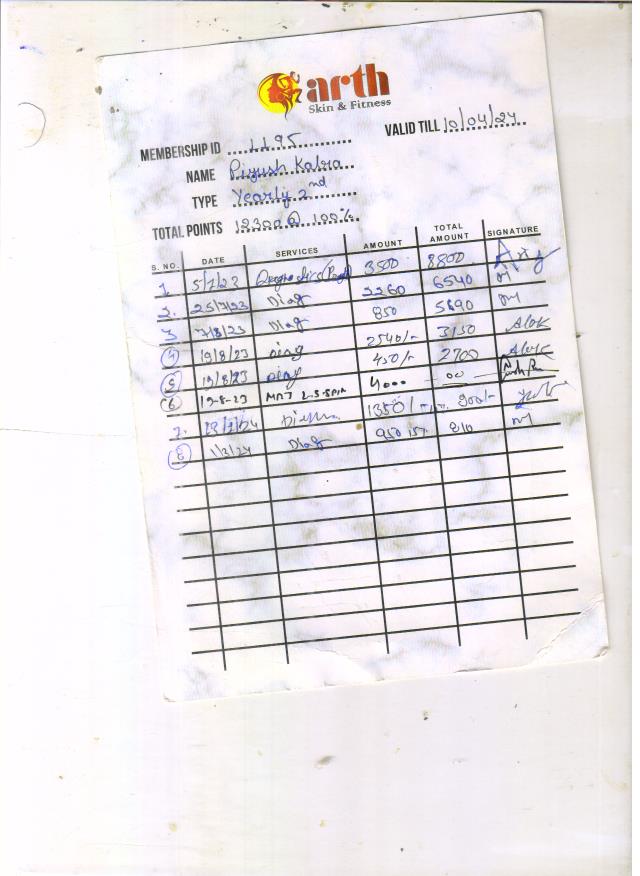 arth
Skin & Fitness
VALID TILL 10/04/24
MEMBERSHIP ID 1195
NAME Piyush Kalra
TYPE Yearly 2nd
TOTAL POINTS 12300 @ 100%
S. NO. DATE SERVICES AMOUNT TOTAL AMOUNT SIGNATURE
1 5/7/23 3500 8800
2. 25/7/23 Diag 2260 6540
3 7/8/23 Diag 850 5690
4 19/8/23 Diag 2540/- 3150 Alok
5 19/8/23 Diag 450/- 2700 Alok
6 19-8-23 MRI L-S-SPIN 4000 00
7. 1350/-
8 1/2/24 Diag 950 210